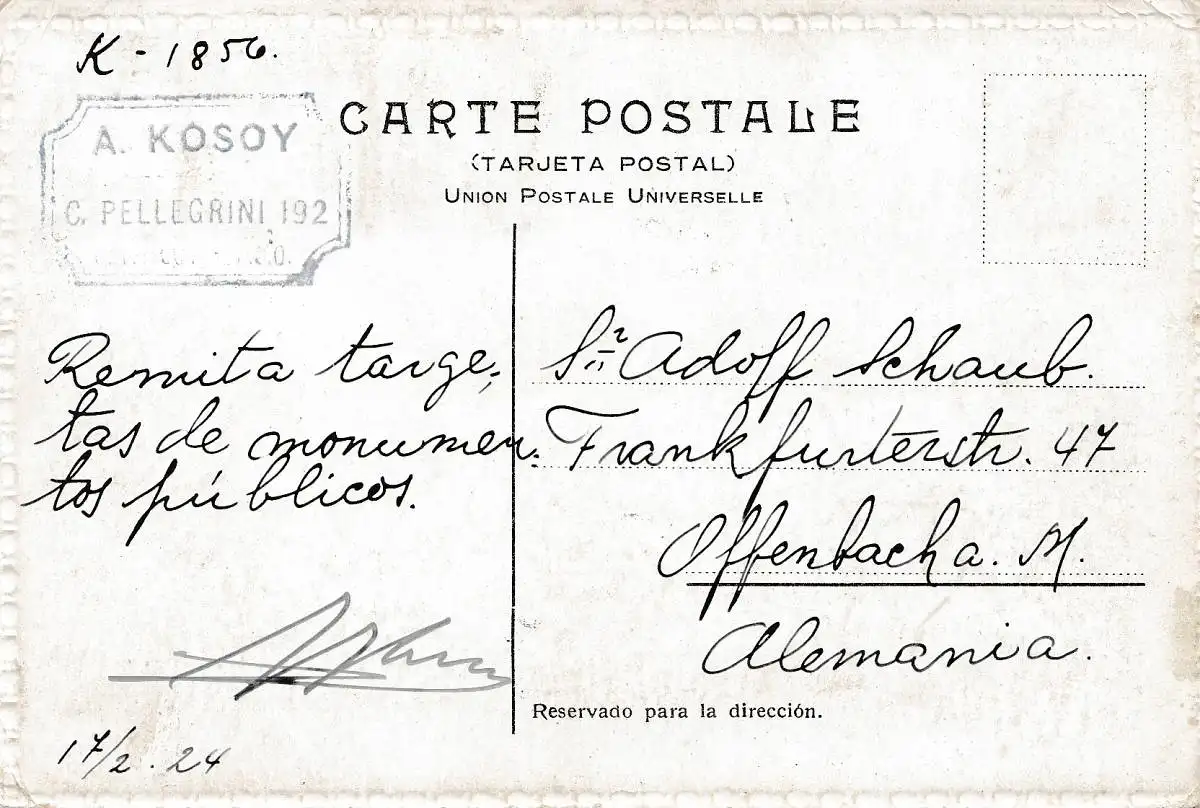 K-1856.
A. KOSOY
C. PELLEGRINI 192
CARTE POSTALE
(TARJETA POSTAL)
UNION POSTALE UNIVERSELLE
Remita targe-
tas de monumen-
tos públicos.
17/2.24
Sr Adolf Schaub.
Frankfurterstr. 47
Offenbach a. M.
Alemánia.
Reservado para la dirección.